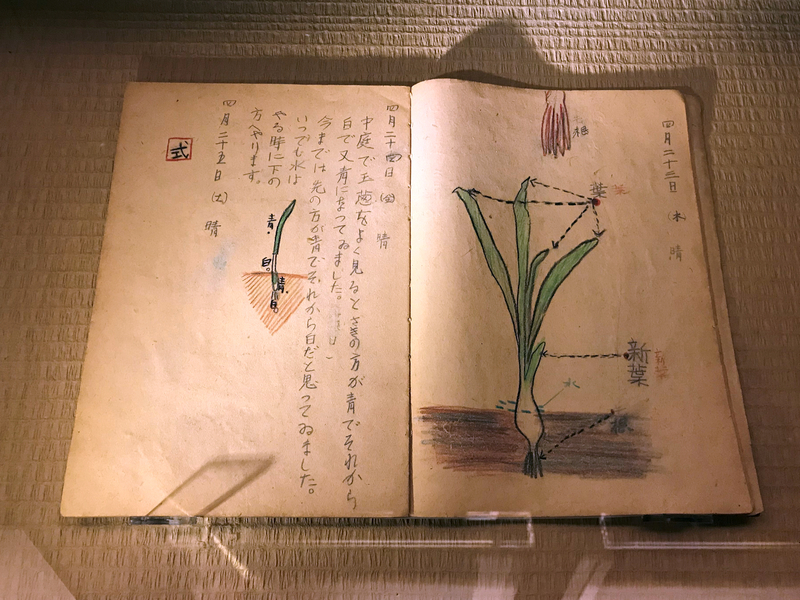 四月二十三日 (木) 晴
毛根
葉 葉
新葉 新葉
水
根
四月二十四日 (金) 晴
中庭で玉葱をよく見るとさきの方が青でそれから
白で又青になつてゐました。
今までは先の方が青でそれから白だと思つてゐました。
いつでも水は
やる時に下の
方へやります。
青。
白。
青。
白。
四月二十五日 (土) 晴
式